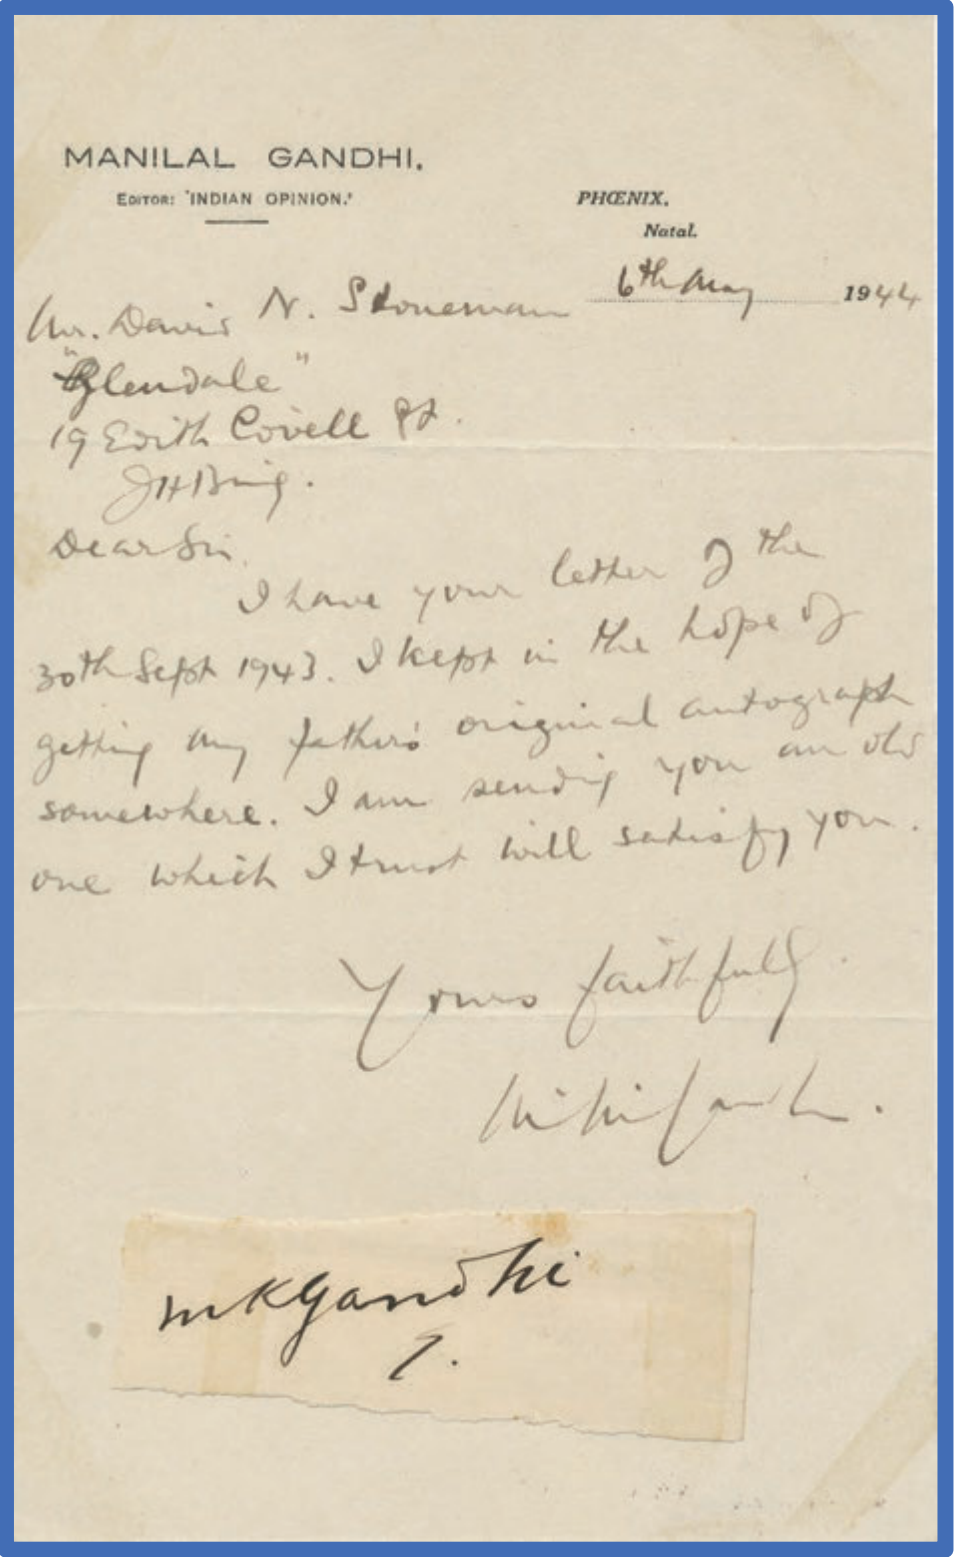 MANILAL GANDHI.
EDITOR: 'INDIAN OPINION.'
PHŒNIX.
Natal.
6th May 1944
Mr. David N. Stoneman
"Glendale"
19 Edith Cavell St.
JHBurg.
Dear Sir,
I have your letter of the
30th Sept 1943. I kept in the hope of
getting my father's original autograph
somewhere. I am sending you an old
one which I trust will satisfy you.
Yours faithfully
MKGandhi